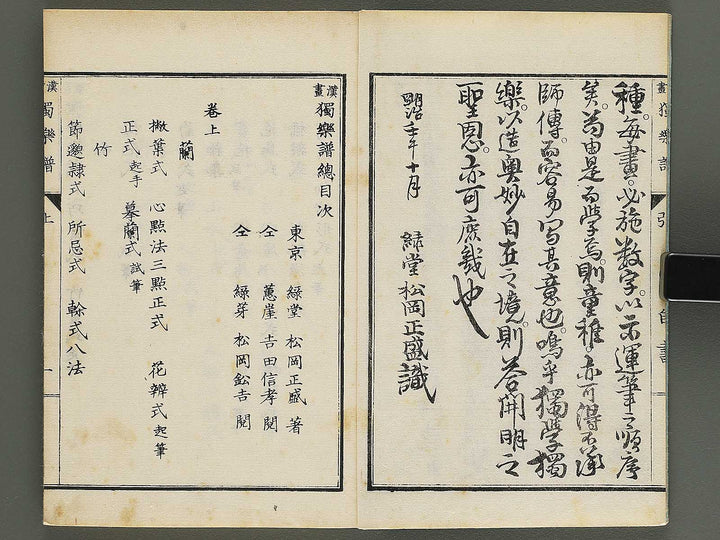 種。每畫。必施数字。以示運筆之順序
矣。苟由是而學焉。則童稚亦可得不承
師傳。而容易写其意也。嗚乎獨學獨
樂。以造奥妙自在之境。則荅開明之
聖恩。亦可庶幾也
明治十二年十月 緑堂松岡正盛識
漢畫 獨樂譜總目次
東京 緑堂 松岡正盛 著
仝 蕙崖 𠮷田信孝 閲
仝 緑芽 松岡鈆𠮷 閲
卷上
蘭
撇葉式 心點法三點正式 花辧式起筆
正式起手 摹蘭式試筆
竹
節邈隷式 所忌式 榦式八法
漢畫 獨樂譜 上 一